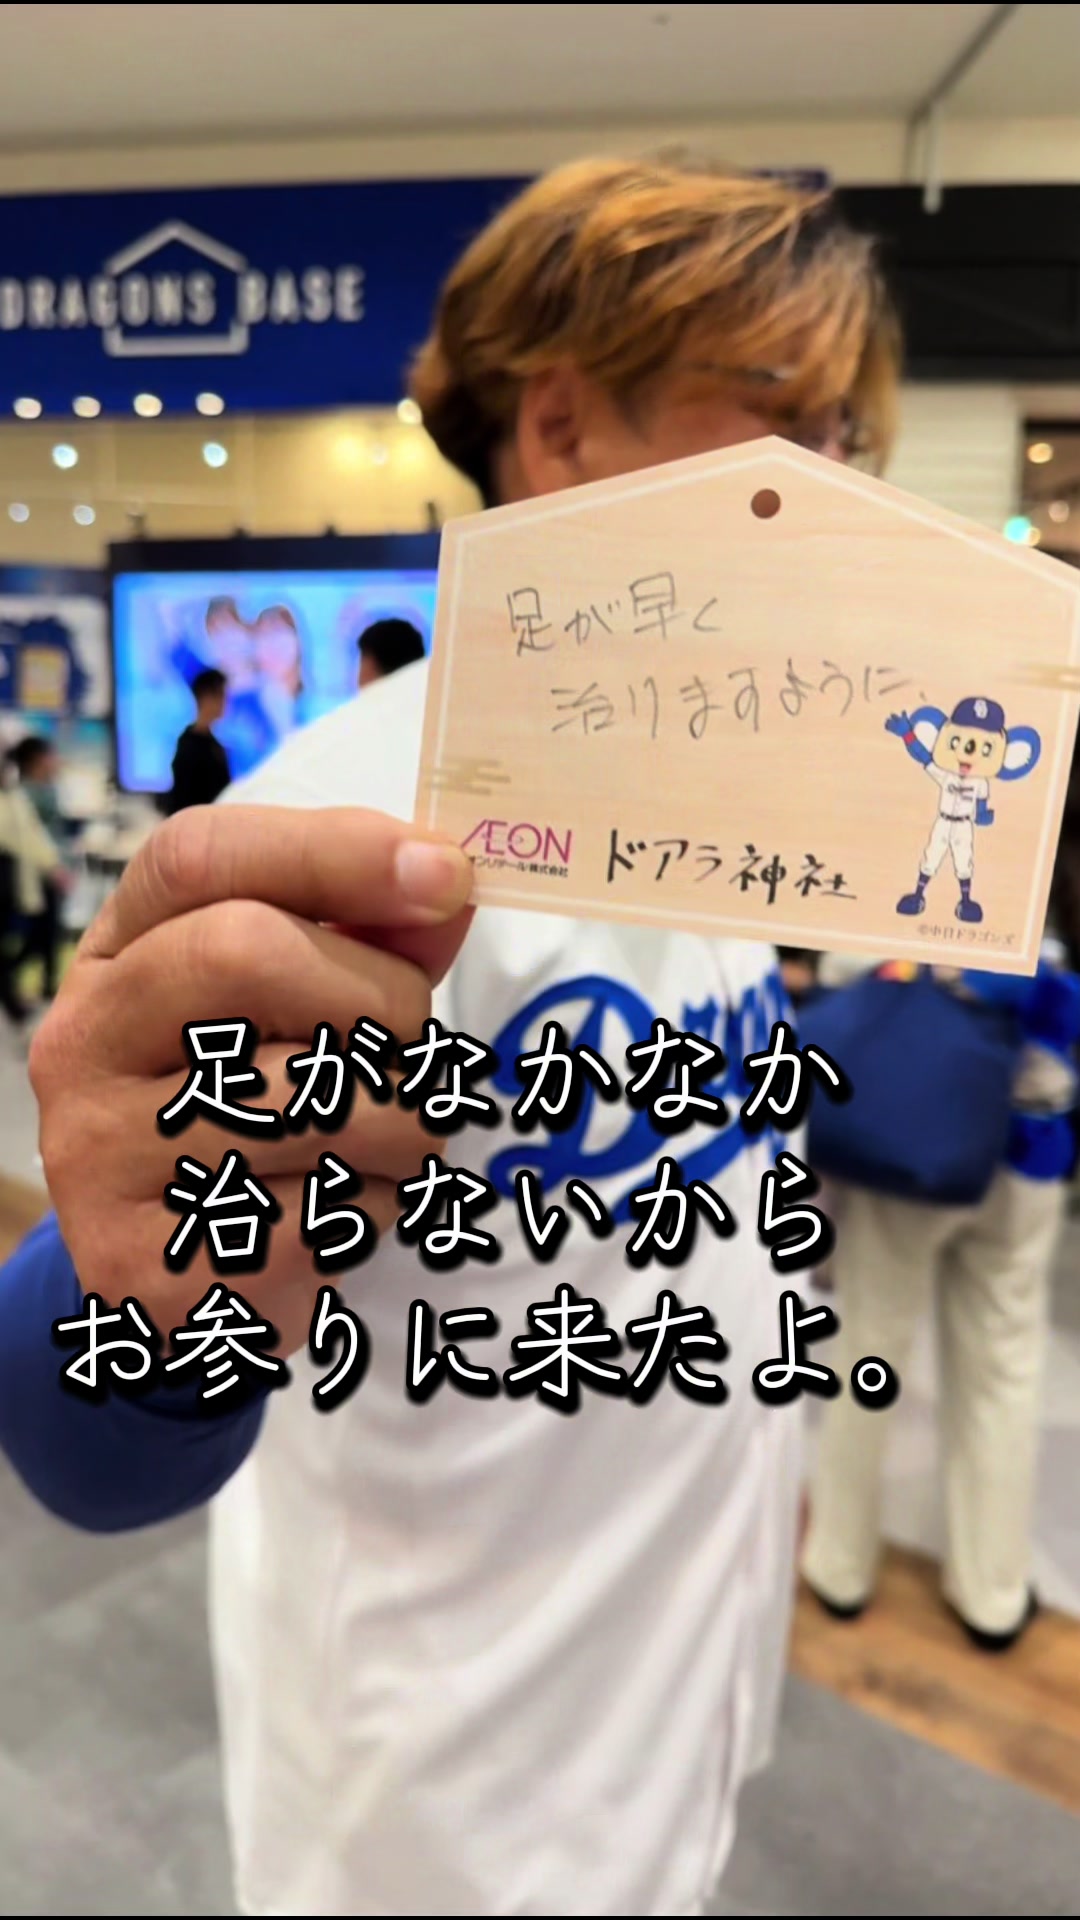 DRAGONS BASE
足が早く
治りますように、
ÆON
イオンリテール株式会社
ドアラ神社
©中日ドラゴンズ
足がなかなか
治らないから
お参りに来たよ。